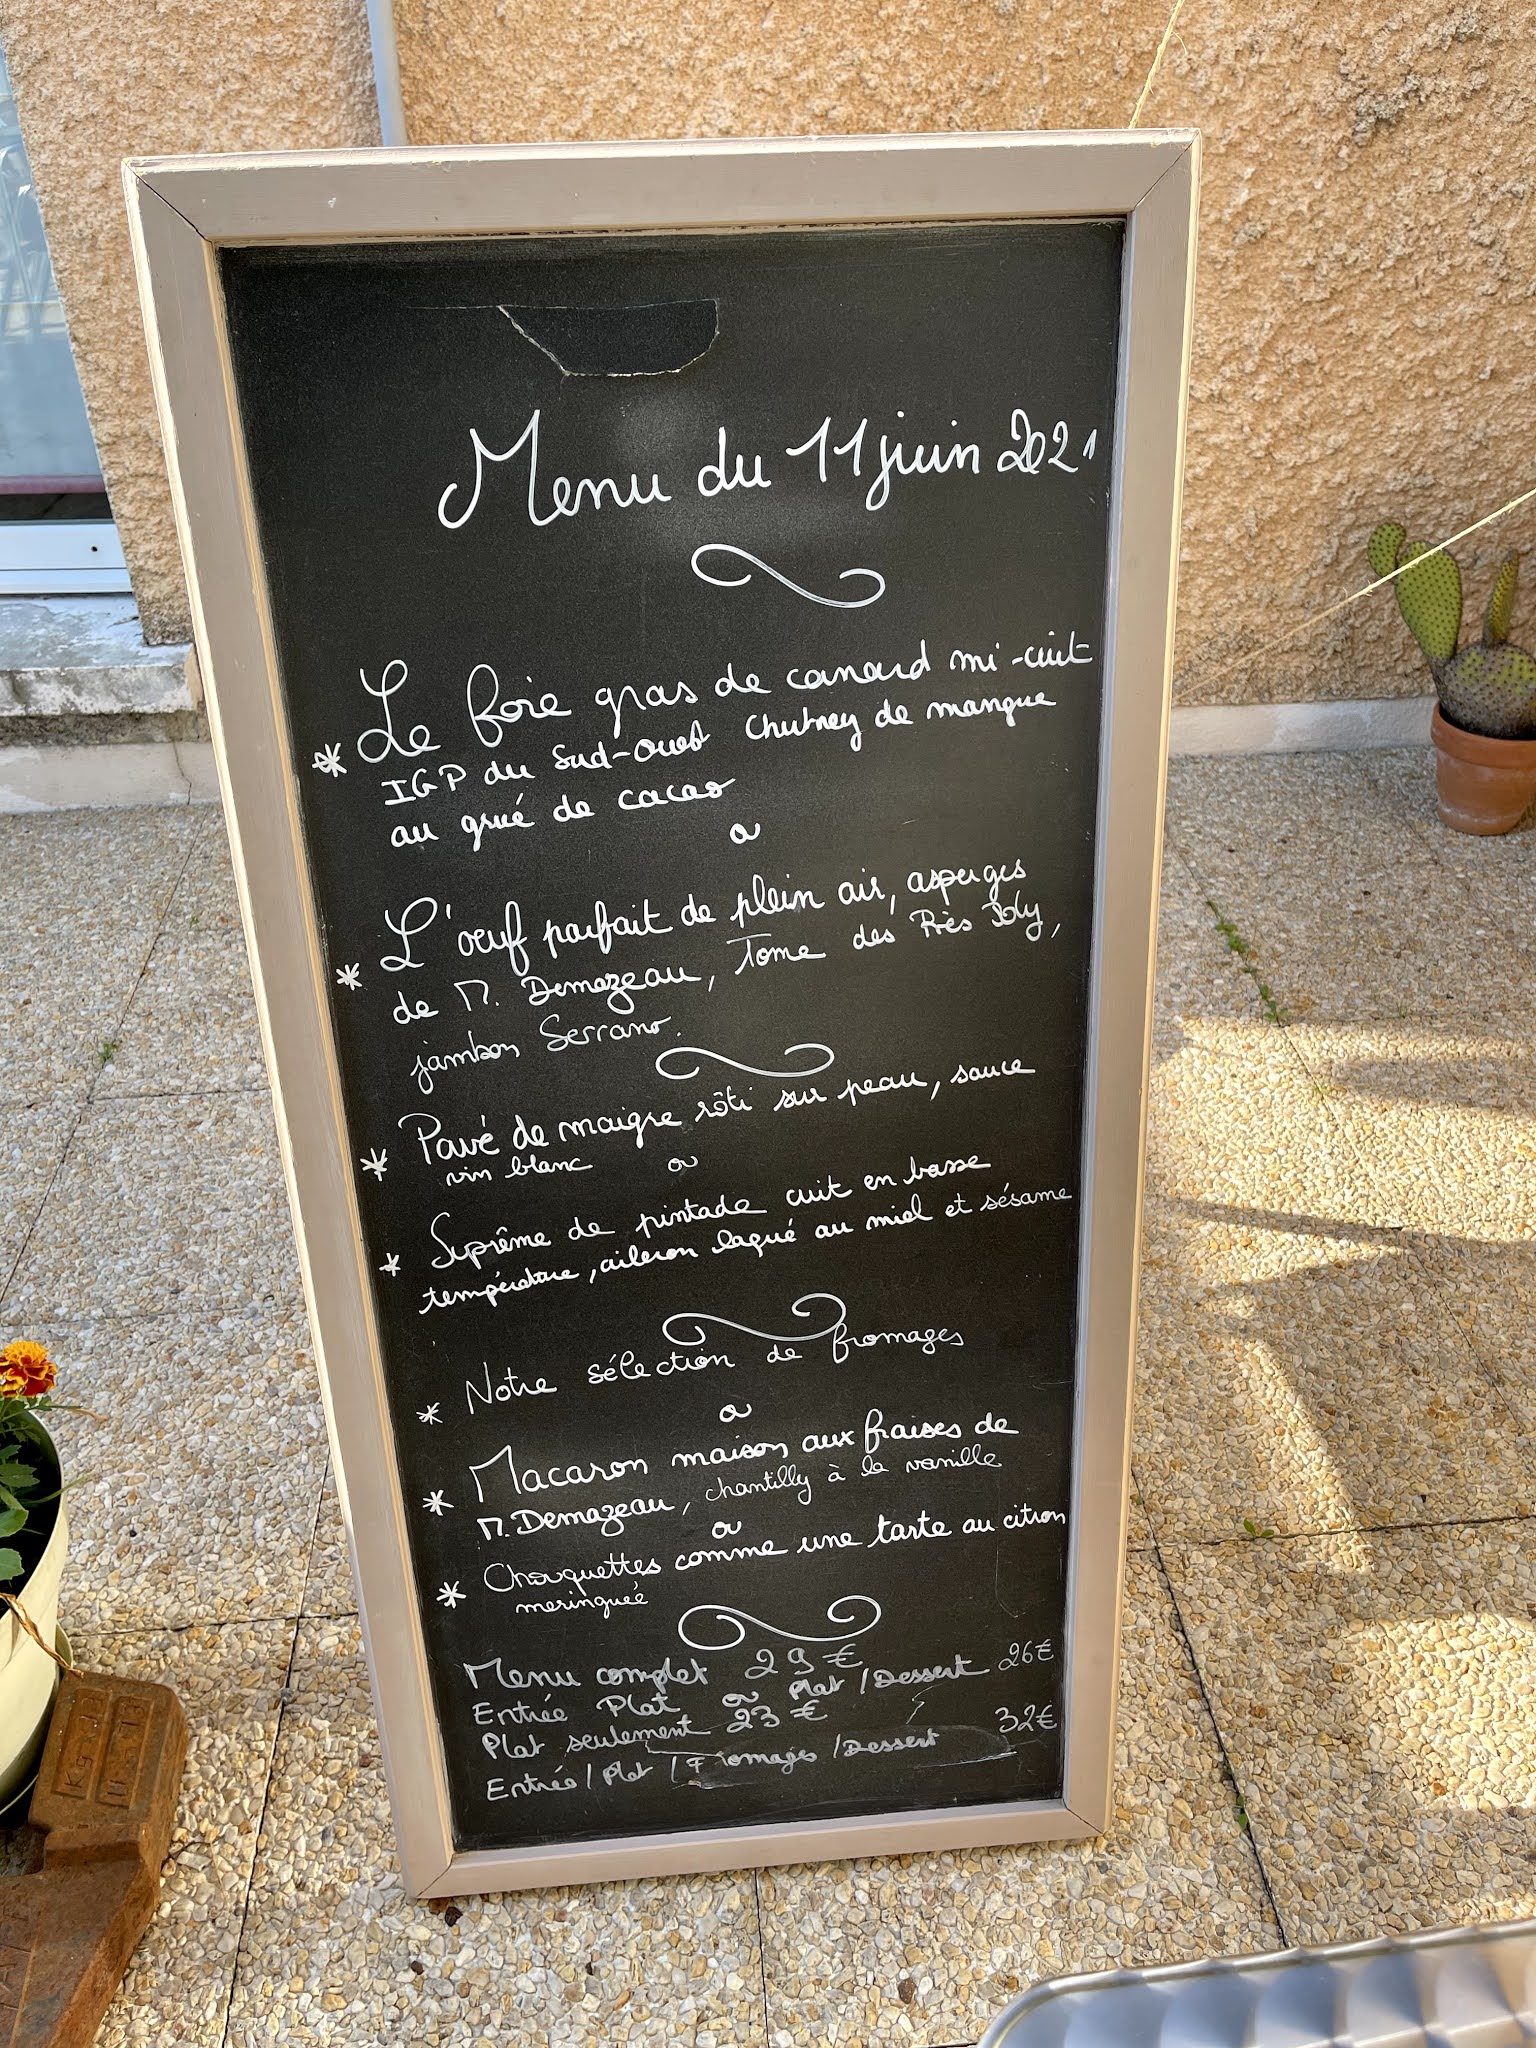 Menu du 11 juin 2021
* Le foie gras de canard mi-cuit
IGP du Sud-Ouest Chutney de mangue
au grué de cacao
ou
* L'œuf parfait de plein air, asperges
de M. Demazeau, Tome des Près Joly,
jambon Serrano.
* Pavé de maigre rôti sur peau, sauce
vin blanc
ou
* Suprême de pintade cuit en basse
température, aileron laqué au miel et sésame
* Notre sélection de fromages
ou
* Macaron maison aux fraises de
M. Demazeau, chantilly à la vanille
ou
* Chouquettes comme une tarte au citron
meringuée
Menu complet 29€
Entrée Plat ou Plat/Dessert 26€
Plat seulement 23€
Entrée/Plat/Fromages/Dessert 32€